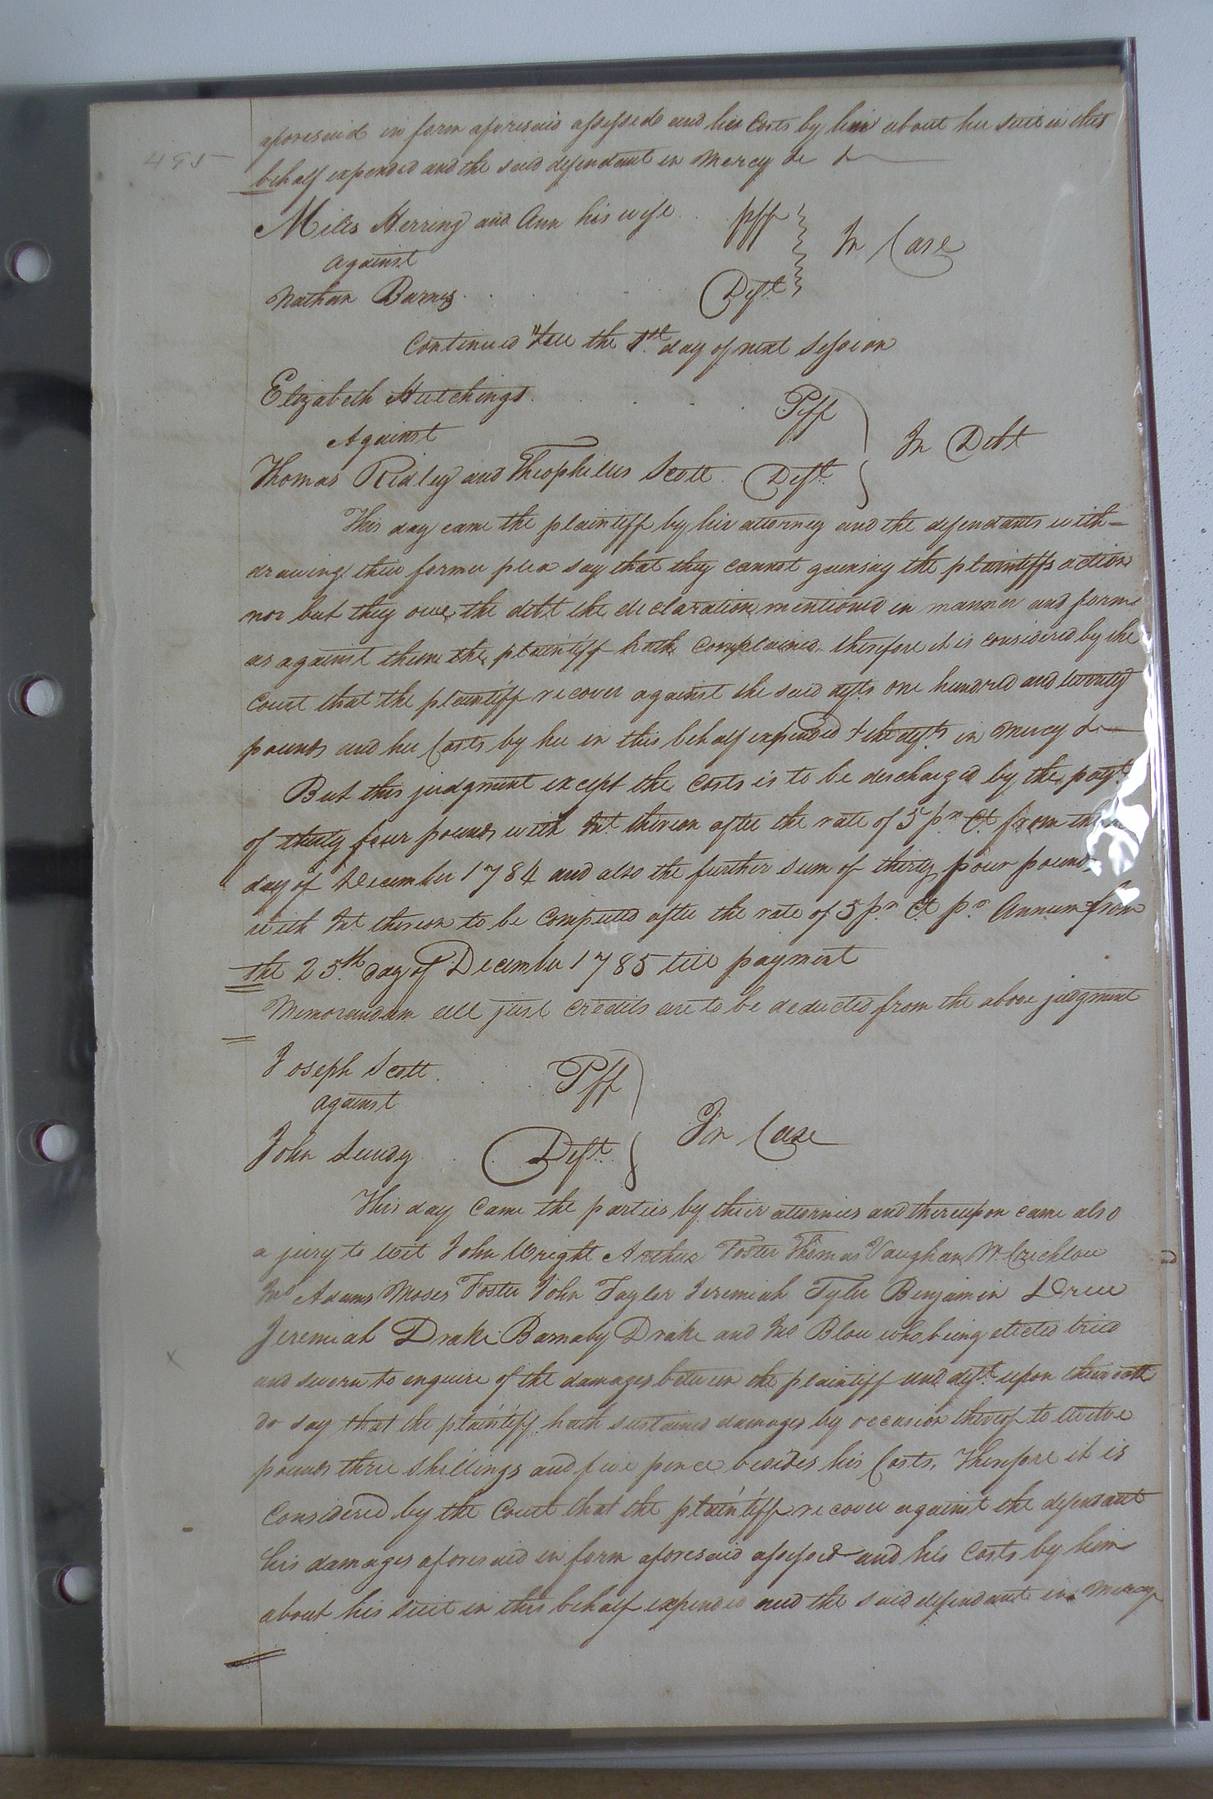 495
aforesaid in form aforesaid assessed and his Costs by him about his suit in this
behalf expended and the said defendant in Mercy &c &
Miles Herring and Ann his wife .. pff
against In Case
Nathan Barnes . . . . . Deft
Continued till the 1st day of next Session
Elizabeth Hutchings . . . . Pff
Against In Debt
Thomas Ridley and Theophilus Scott Deft
This day came the plaintiff by his attorney and the defendants with-
drawing their former plea say that they cannot gainsay the plaintiffs action
nor but they owe the debt the declaration mentioned in manner and form
as against them the plaintiff hath Complained therefore it is considered by the
Court that the plaintiff recover against the said defts one hundred and twenty
pounds and her Costs by her in this behalf expended & the defts in Mercy &c
But this judgment except the Costs is to be discharged by the payt
of thirty four pounds with Int thereon after the rate of 5 pr Ct from the
day of December 1784 and also the further sum of thirty four pounds
with Int thereon to be Computed after the rate of 5 pr Ct pr Annum from
the 25th day of December 1785 till payment
Memorandum all just Credits are to be deducted from the above judgment
Joseph Scott . . Pff
against In Case
John Lundy . . Deft
This day Came the parties by their attornies and thereupon came also
a jury to wit John Wright Arthur Foster Thomas Vaughan Wm Crichlow
Jno Adams Moses Foster John Taylor Jeremiah Tyler Benjamin Drew
Jeremiah Drake Barnaby Drake and Jno Blow who being elected tried
and sworn to enquire of the damages between the plaintiff and deft upon their oath
do say that the plaintiff hath sustained damages by occasion thereof to twelve
pounds three shillings and five pence besides his Costs, Therefore it is
Considered by the Court that the plaintiff recover against the defendant
his damages aforesaid in form aforesaid assessed and his Costs by him
about his suit in this behalf expended and the said defendant in Mercy